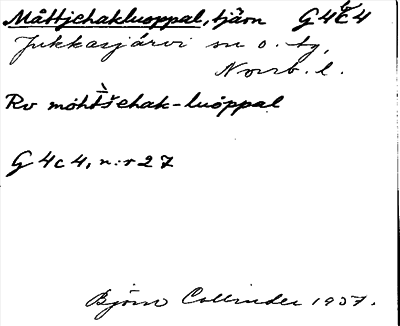 Måttjehakluoppal, tjärn G4c4
Jukkasjärvi sn o. tg,
Norrb. l.
Rv möhtšehak-luoppal
G4c4, n:r 27
Björn Collinder 1937.